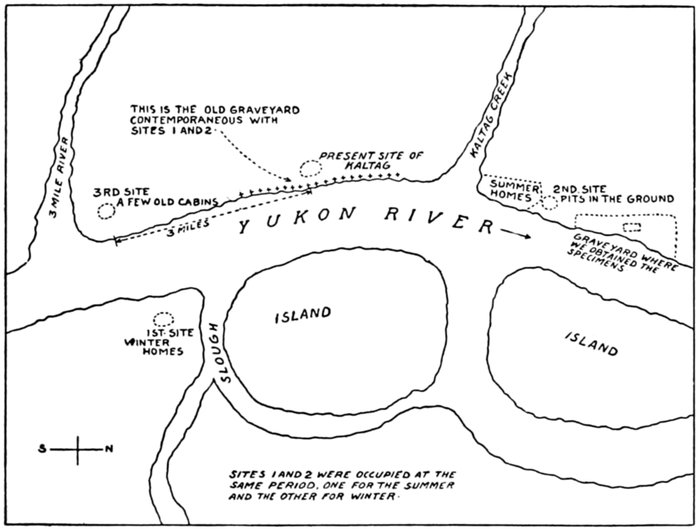 THIS IS THE OLD GRAVEYARD
CONTEMPORANEOUS WITH
SITES 1 AND 2.
PRESENT SITE OF
KALTAG
KALTAG CREEK
3 MILE RIVER
3RD SITE
A FEW OLD CABINS
3 MILES
YUKON RIVER
SUMMER
HOMES
2ND SITE
PITS IN THE GROUND
GRAVEYARD WHERE
WE OBTAINED THE
SPECIMENS
ISLAND
ISLAND
1ST SITE
WINTER
HOMES
SLOUGH
S N
SITES 1 AND 2 WERE OCCUPIED AT THE
SAME PERIOD, ONE FOR THE SUMMER
AND THE OTHER FOR WINTER.